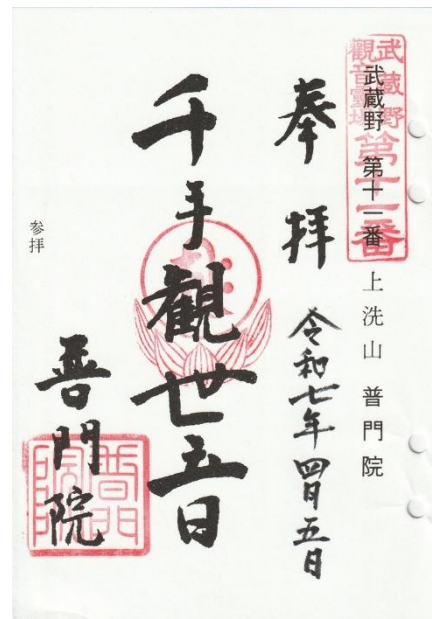 武蔵野
觀音靈場
第十一番
武蔵野 第十一番 上洗山 普門院
奉拝 令和七年四月五日
千手觀世音
普門院
普門院
参拝